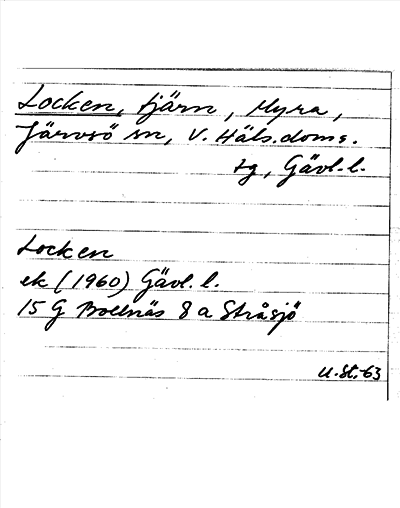 Locken, tjärn, Myra,
Järvsö sn, V. Häls. doms.
tg, Gävl. l.
Locken
ek (1960) Gävl. l.
15 G Bollnäs 8 a Stråsjö
U. St. -63